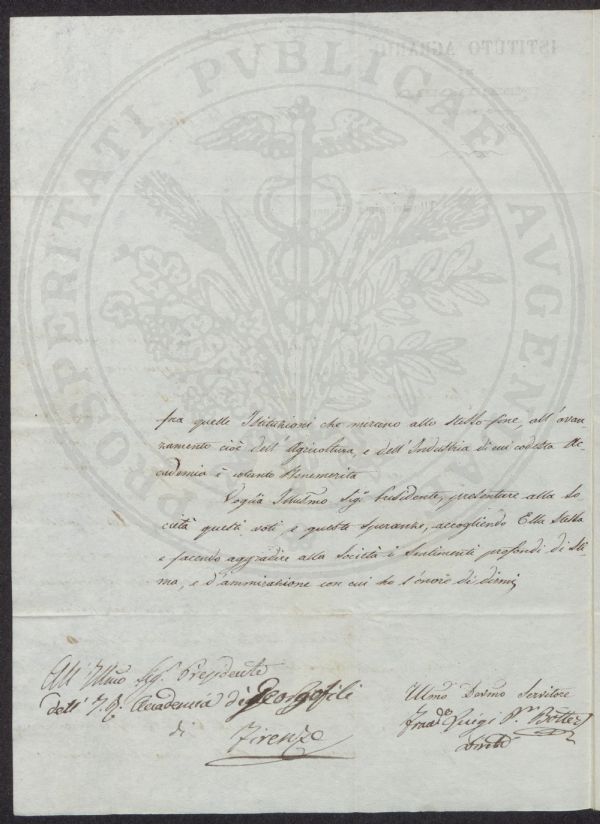 PROSPERITATI PVBLICAE AVGENDAE
ISTITUTO AGRARIO
fra quelle Istituzioni che mirano allo stesso fine, all'avan
zamento cioè dell'Agricoltura, e dell'Industria di cui codesta Ac-
cademia è cotanto Benemerita
Voglia Illusmo Sigr Presidente, presentare alla So
cietà questi voti e queste speranze, accogliendo Ella stessa
e facendo aggradire alla Società i Sentimenti profondi di Sti
ma, e d'ammirazione con cui ho l'onore di dirmi
All'Illmo Sigr Presidente
dell'I. R. Accademia di Georgofili
di
Firenze
Devmo Servitore
Luigi Botter